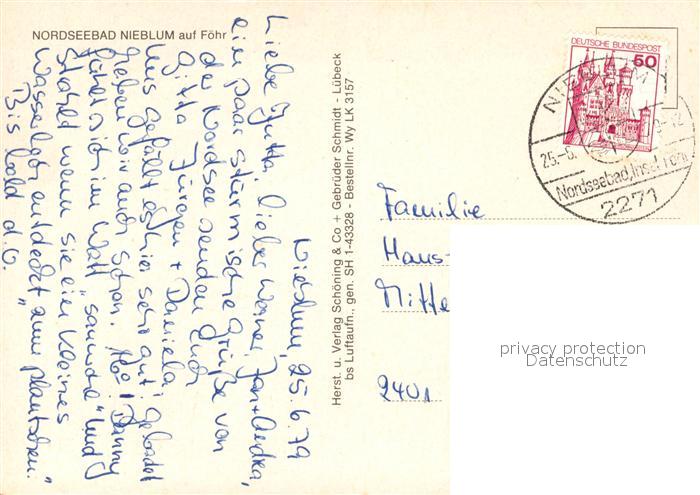 NORDSEEBAD NIEBLUM auf Föhr
Nieblum, 25.6.79
Liebe Jutta, lieber Werner, Jan + Andrea,
ein paar stürmische Grüße von
der Nordsee senden Euch
Gitta, Jürgen + Daniela.
Uns gefällt es hier sehr gut; gebadet
haben wir auch schon. 16° !
fühlt sich im Watt "sauwohl" und
strahlt wenn sie ein kleines
Wasserloch entdeckt "zum plantschen."
Bis bald d.O.
Herst. u. Verlag Schöning & Co + Gebrüder Schmidt - Lübeck
bs Luftaufn., gen. SH 1-43328 - Bestellnr. Wy LK 3157
DEUTSCHE BUNDESPOST
50
NIEBLUM
25.-6.
-12
Nordseebad, Insel Föhr
2271
Familie
Hans-
Mitte
2401
privacy protection
Datenschutz